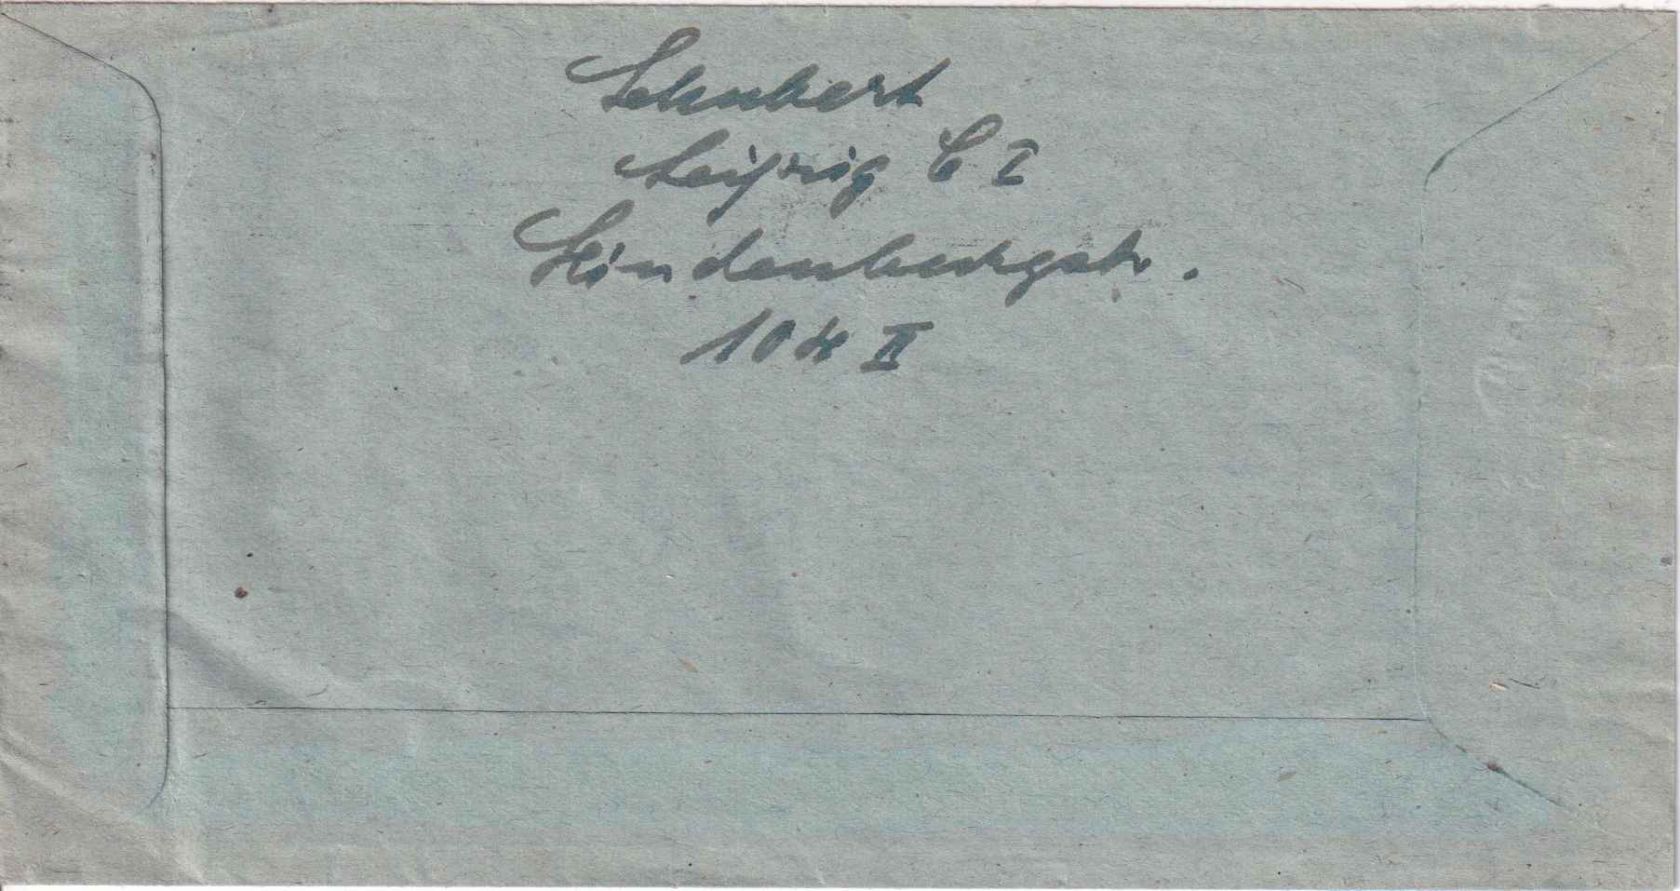 Schubert
Leipzig C I
Hindenburgstr.
104 II